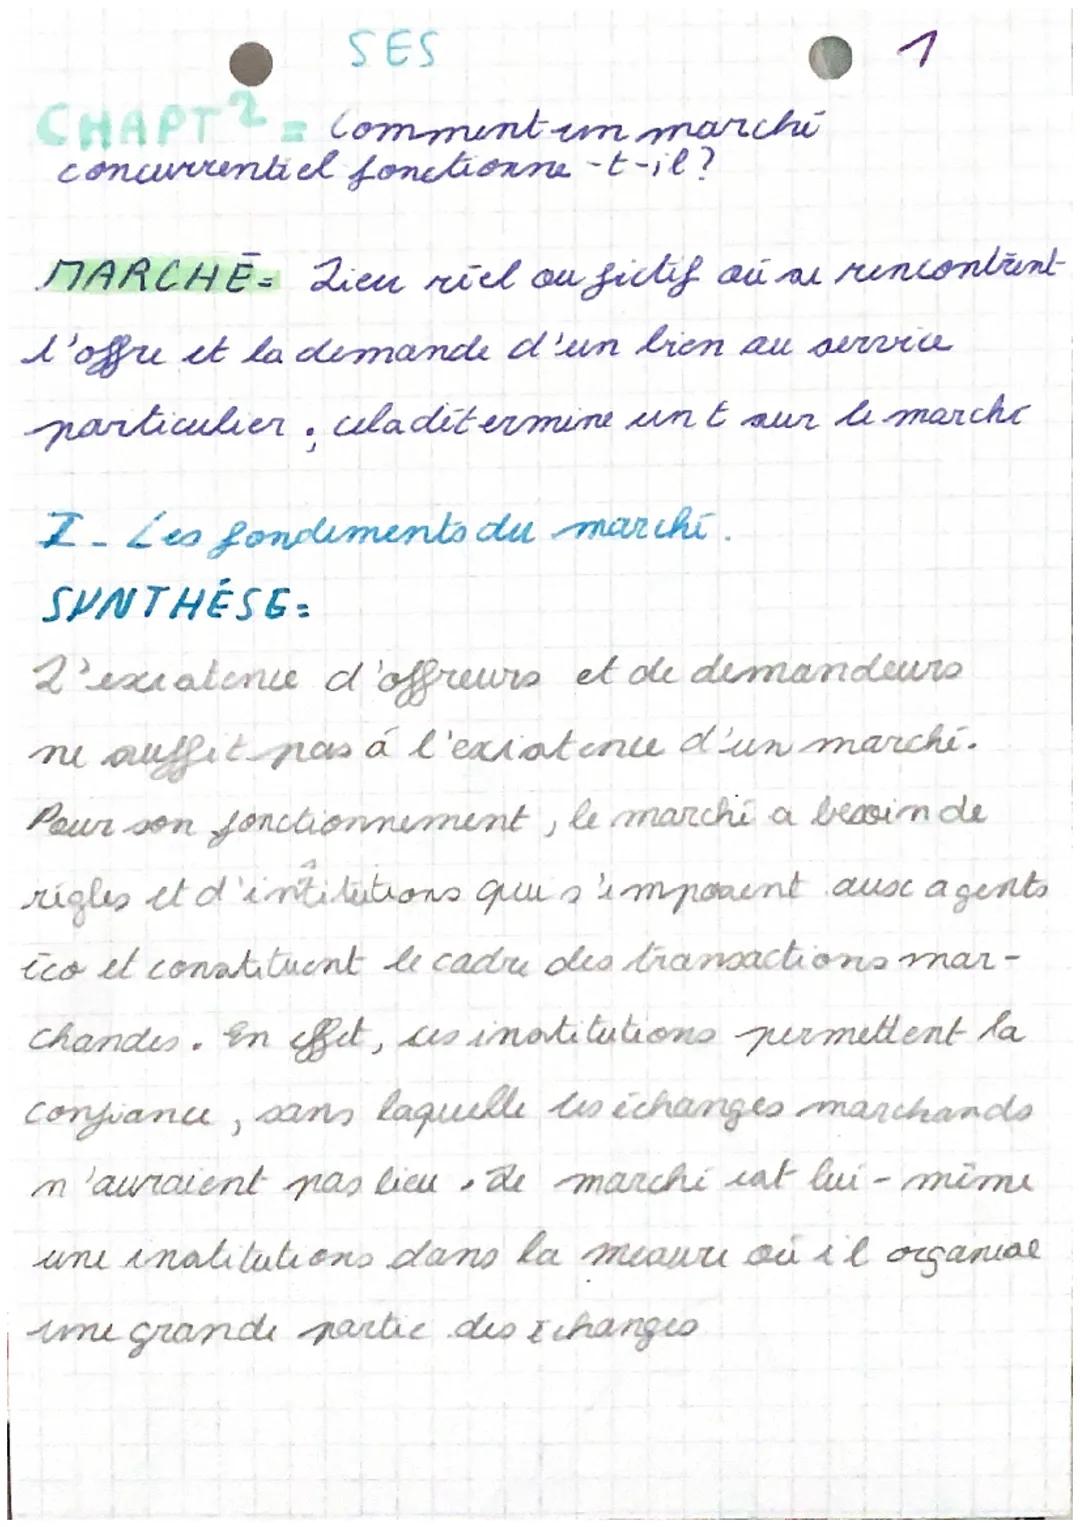 SES
1
CHAPT 2 = Comment un marché
concurrentiel fonctionne-t-il?
MARCHÉ = Lieu réel ou fictif où se rencontrent
l'offre et la demande d'un bien ou service
particulier, cela détermine un t sur le marché
I - Les fondements du marché.
SYNTHÉSE =
L'existence d'offreurs et de demandeurs
ne suffit pas à l'existence d'un marché.
Pour son fonctionnement, le marché a besoin de
règles et d'intitutions qui s'imposent aux agents
éco et constituent le cadre des transactions mar-
chandes. En effet, ces institutions permettent la
confiance, sans laquelle les échanges marchands
n'auraient pas lieu. Le marché est lui-même
une institutions dans la mesure où il organise
une grande partie des échanges